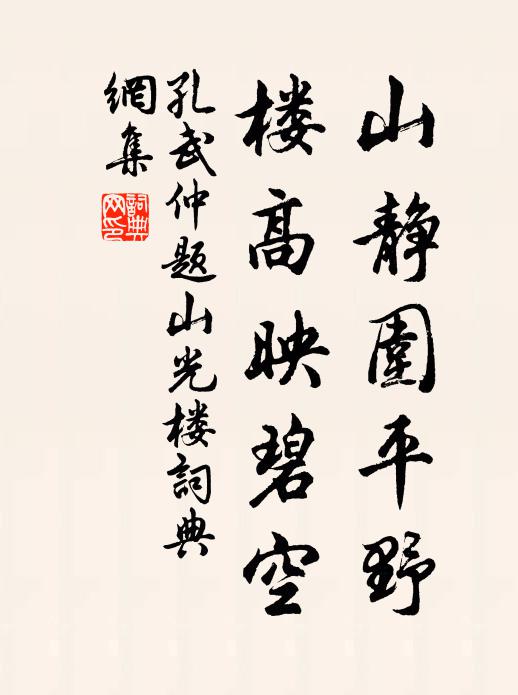 山静围平野
楼高映碧空
孔武仲题山光楼詞典
網集
詞典
网印